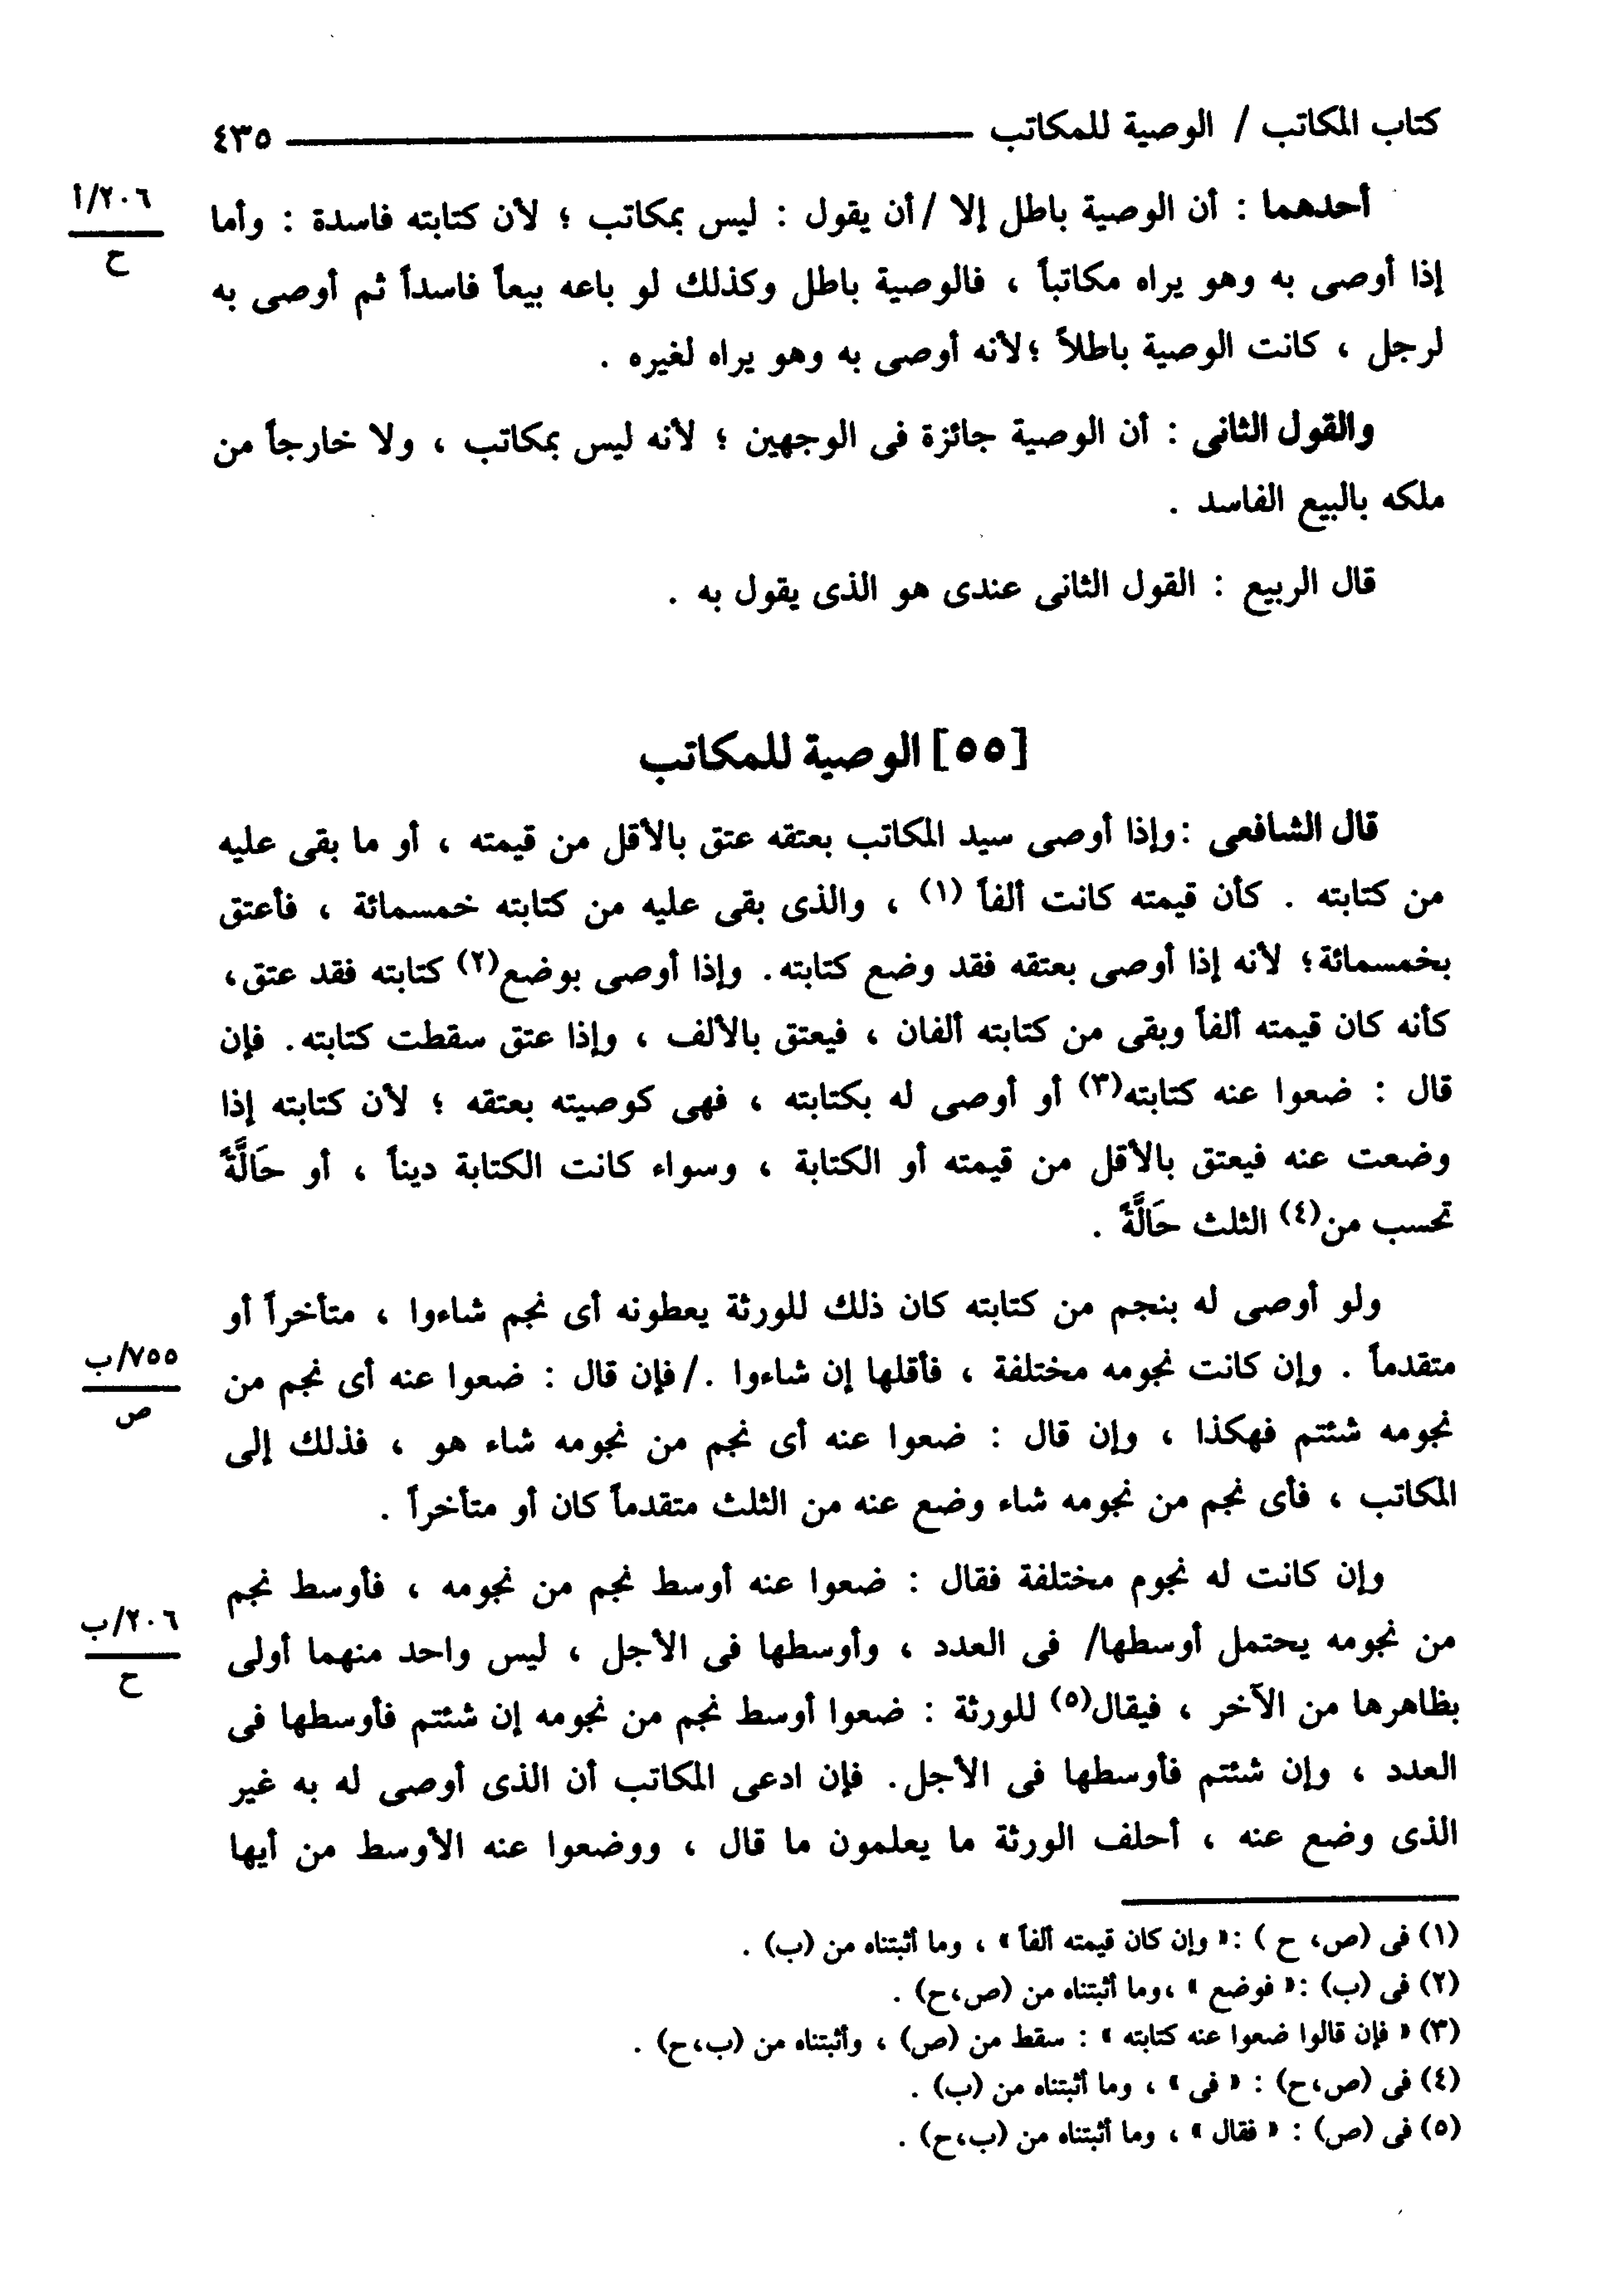 كتاب المكاتب / الوصية للمكاتب ــــــــــ ٤٣٥
أحدهما : أن الوصية باطل إلا / أن يقول : ليس بمكاتب ؛ لأن كتابته فاسدة : وأما
٢٠٦/أ
ح
إذا أوصى به وهو يراه مكاتباً ، فالوصية باطل وكذلك لو باعه بيعاً فاسداً ثم أوصى به
لرجل ، كانت الوصية باطلاً ؛لأنه أوصى به وهو يراه لغيره .
والقول الثانى : أن الوصية جائزة فى الوجهين ؛ لأنه ليس بمكاتب ، ولا خارجاً من
ملكه بالبيع الفاسد .
قال الربيع : القول الثانى عندى هو الذى يقول به .
[٥٥] الوصية للمكاتب
قال الشافعى :وإذا أوصى سيد المكاتب بعتقه عتق بالأقل من قيمته ، أو ما بقى عليه
من كتابته . كأن قيمته كانت ألفاً (١) ، والذى بقى عليه من كتابته خمسمائة ، فأعتق
بخمسمائة؛ لأنه إذا أوصى بعتقه فقد وضع كتابته. وإذا أوصى بوضع(٢) كتابته فقد عتق،
كأنه كان قيمته ألفاً وبقى من كتابته ألفان ، فيعتق بالألف ، وإذا عتق سقطت كتابته. فإن
قال : ضعوا عنه كتابته(٣) أو أوصى له بكتابته ، فهى كوصيته بعتقه ؛ لأن كتابته إذا
وضعت عنه فيعتق بالأقل من قيمته أو الكتابة ، وسواء كانت الكتابة ديناً ، أو حَالَّةً
تحسب من(٤) الثلث حَالَّةً .
ولو أوصى له بنجم من كتابته كان ذلك للورثة يعطونه أى نجم شاءوا ، متأخراً أو
متقدماً . وإن كانت نجومه مختلفة ، فأقلها إن شاءوا ./ فإن قال : ضعوا عنه أى نجم من
٧٥٥/ب
ص
نجومه شئتم فهكذا ، وإن قال : ضعوا عنه أى نجم من نجومه شاء هو ، فذلك إلى
المكاتب ، فأى نجم من نجومه شاء وضع عنه من الثلث متقدماً كان أو متأخراً .
وإن كانت له نجوم مختلفة فقال : ضعوا عنه أوسط نجم من نجومه ، فأوسط نجم
من نجومه يحتمل أوسطها/ فى العدد ، وأوسطها فى الأجل ، ليس واحد منهما أولى
٢٠٦/ب
ح
بظاهرها من الآخر ، فيقال(٥) للورثة : ضعوا أوسط نجم من نجومه إن شئتم فأوسطها فى
العدد ، وإن شئتم فأوسطها فى الأجل. فإن ادعى المكاتب أن الذى أوصى له به غير
الذى وضع عنه ، أحلف الورثة ما يعلمون ما قال ، ووضعوا عنه الأوسط من أيها
(١) فى (ص، ح ) :« وإن كان قيمته ألفاً » ، وما أثبتناه من (ب) .
(٢) فى (ب) :« فوضع » ،وما أثبتناه من (ص،ح) .
(٣) « فإن قالوا ضعوا عنه كتابته » : سقط من (ص) ، وأثبتناه من (ب،ح) .
(٤) فى (ص،ح) : « فى » ، وما أثبتناه من (ب) .
(٥) فى (ص) : « فقال » ، وما أثبتناه من (ب،ح) .